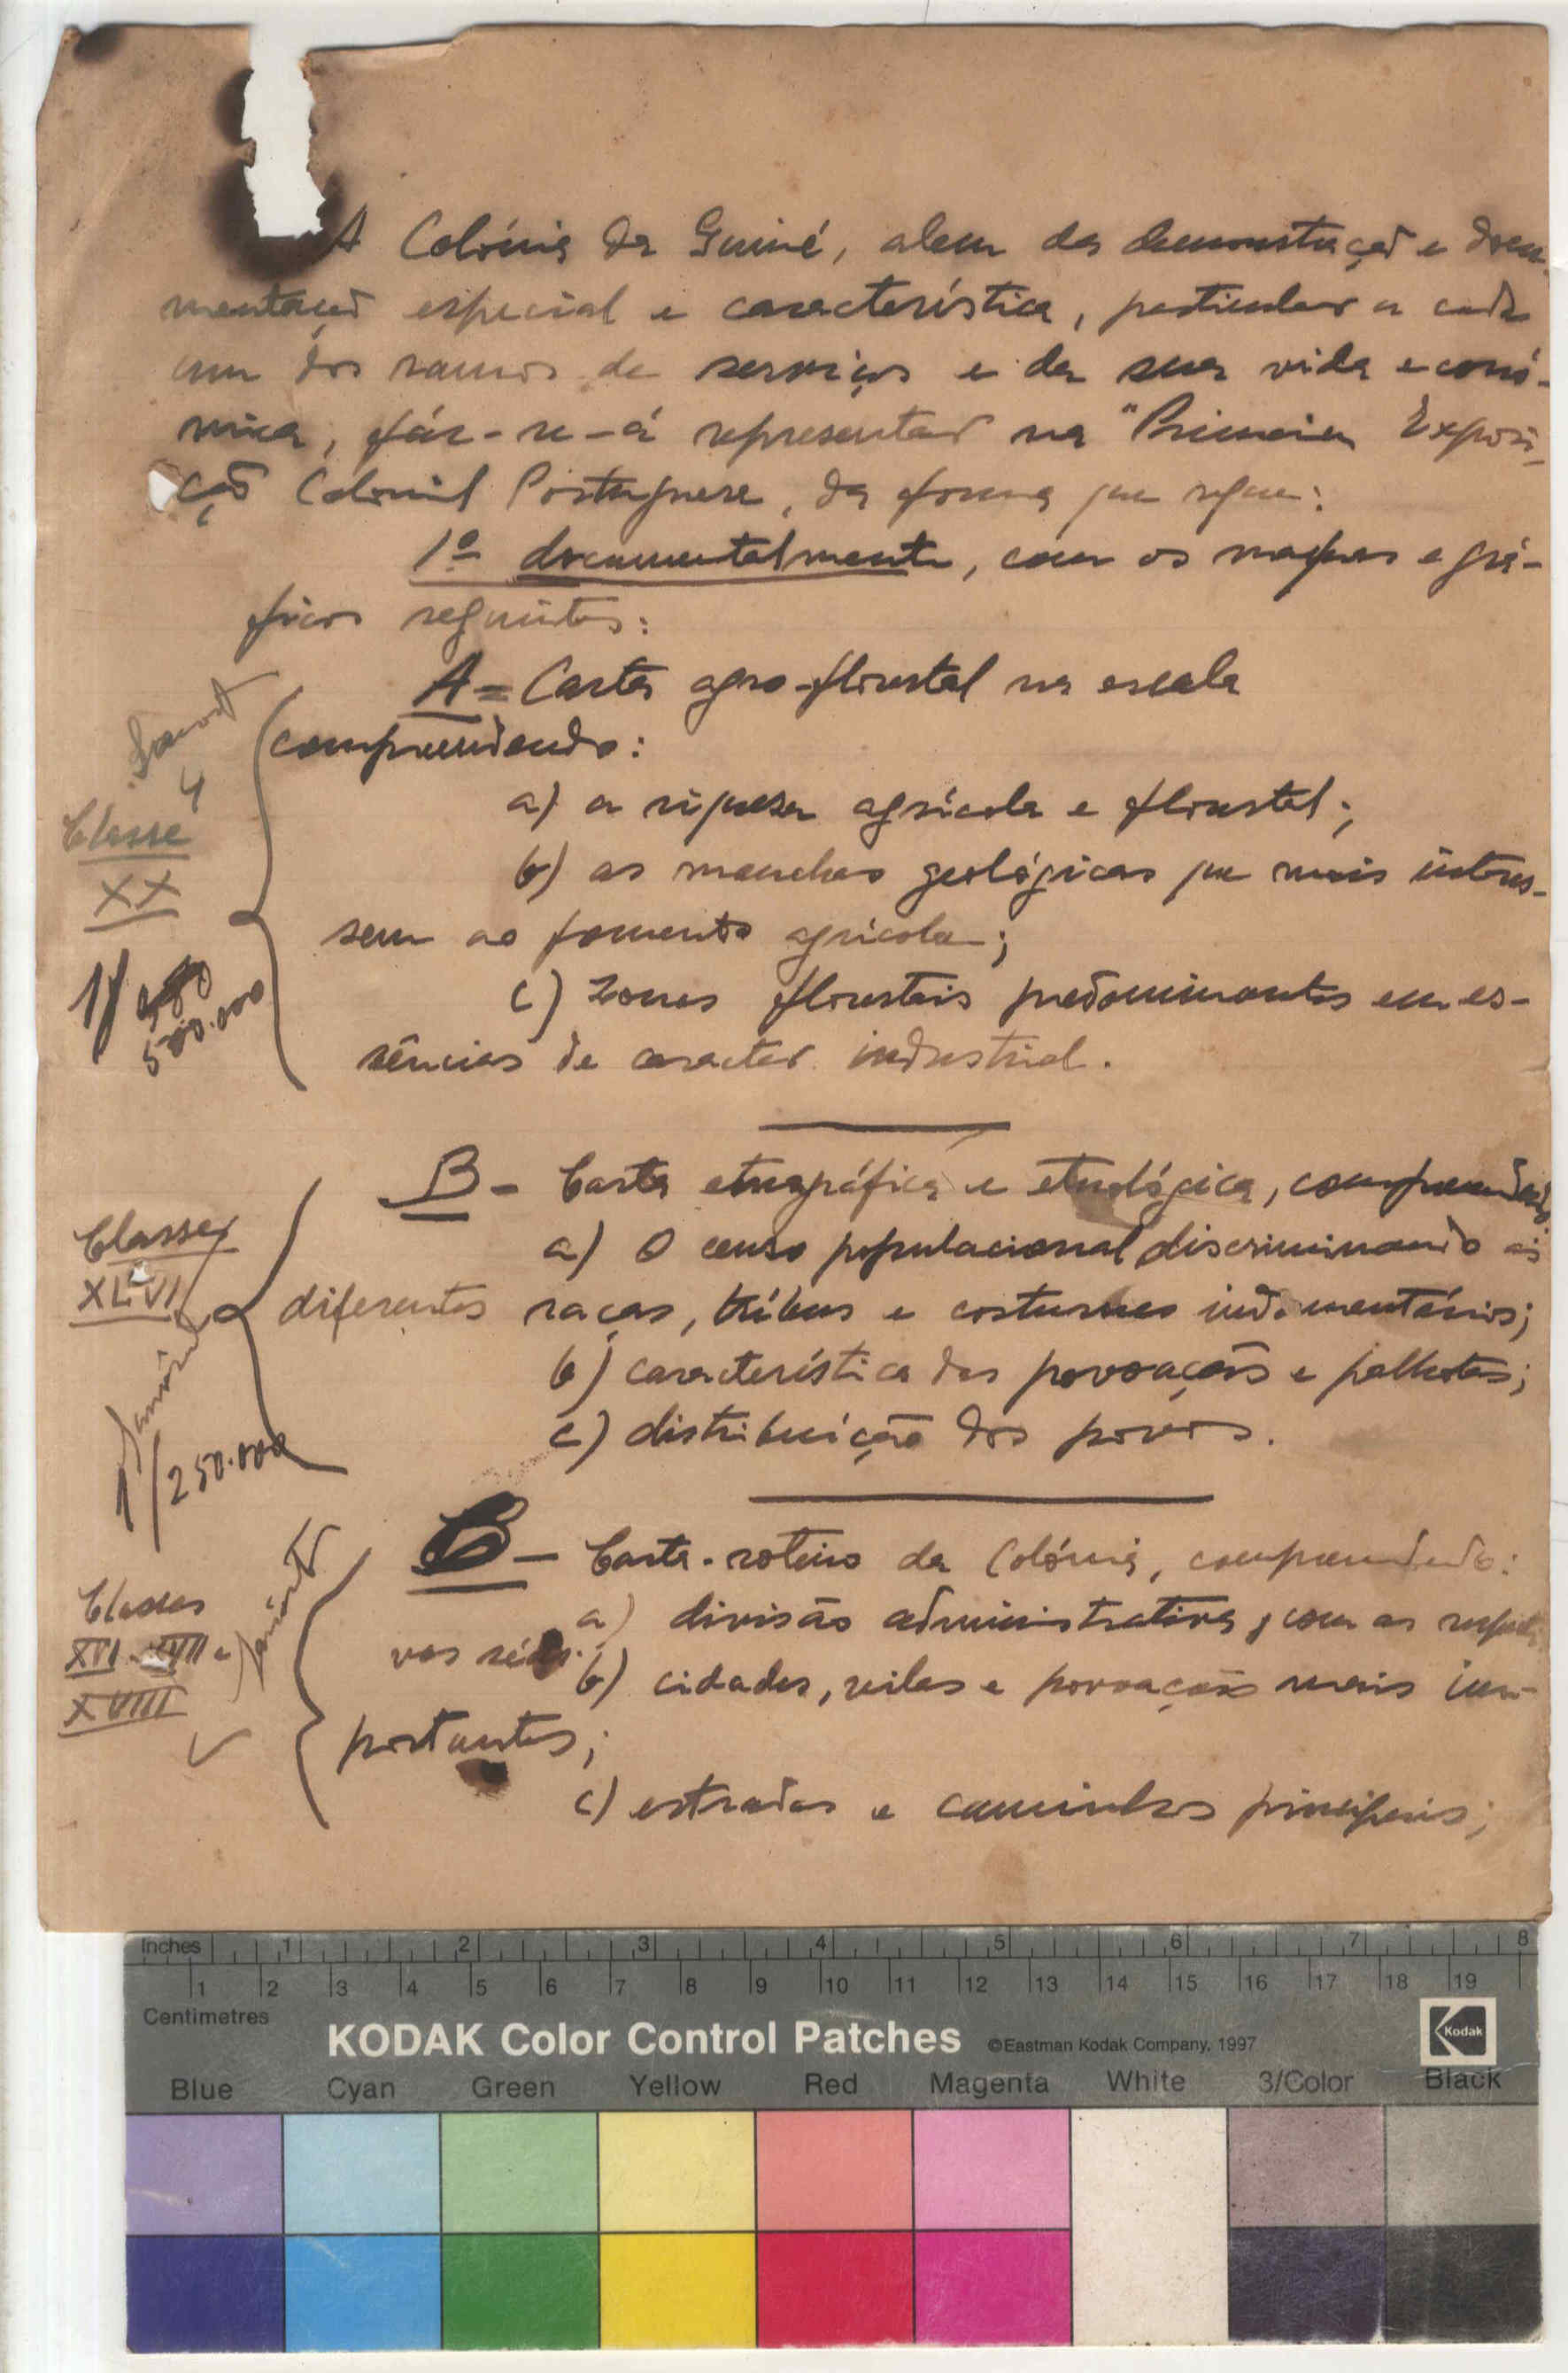 A Colónia da Guiné, alem da demonstração e docu-
mentação especial e característica, particular a cada
um dos ramos de serviços e da sua vida econó-
mica, fár-se-á representar na "Primeira Exposi-
ção Colonial Portuguesa, da forma que segue:
1º documentalmente, com os mapas e grá-
ficos seguintes:
A = Carta agro-florestal na escala
comprendendo:
a) a riqueza agrícola e florestal;
b) as manchas geológicas que mais interes-
sem ao fomento agrícola;
c) Zonas florestais predominantes em es-
sências de caracter industrial.
Classe
XX
1/
500.000
B - Carta etnográfica e etnológica, comprendendo
a) O censo populacional discriminando as
diferentes raças, tribus e costumes indumentários;
b) característica das povoações e palhotas;
c) distribuição dos povos.
Classes
XLVI
1/250.000
C - Carta-roteiro da Colónia, comprendendo:
a) divisão administrativa, com as respecti
vas sédes.
b) cidades, vilas e povoações mais im-
portantes;
c) estradas e caminhos principais;
Classes
XVI XVII e
XVIII
Inches 1 2 3 4 5 6 7 8
1 2 3 4 5 6 7 8 9 10 11 12 13 14 15 16 17 18 19
Centimetres
KODAK Color Control Patches ©Eastman Kodak Company, 1997 Kodak
Blue Cyan Green Yellow Red Magenta White 3/Color Black